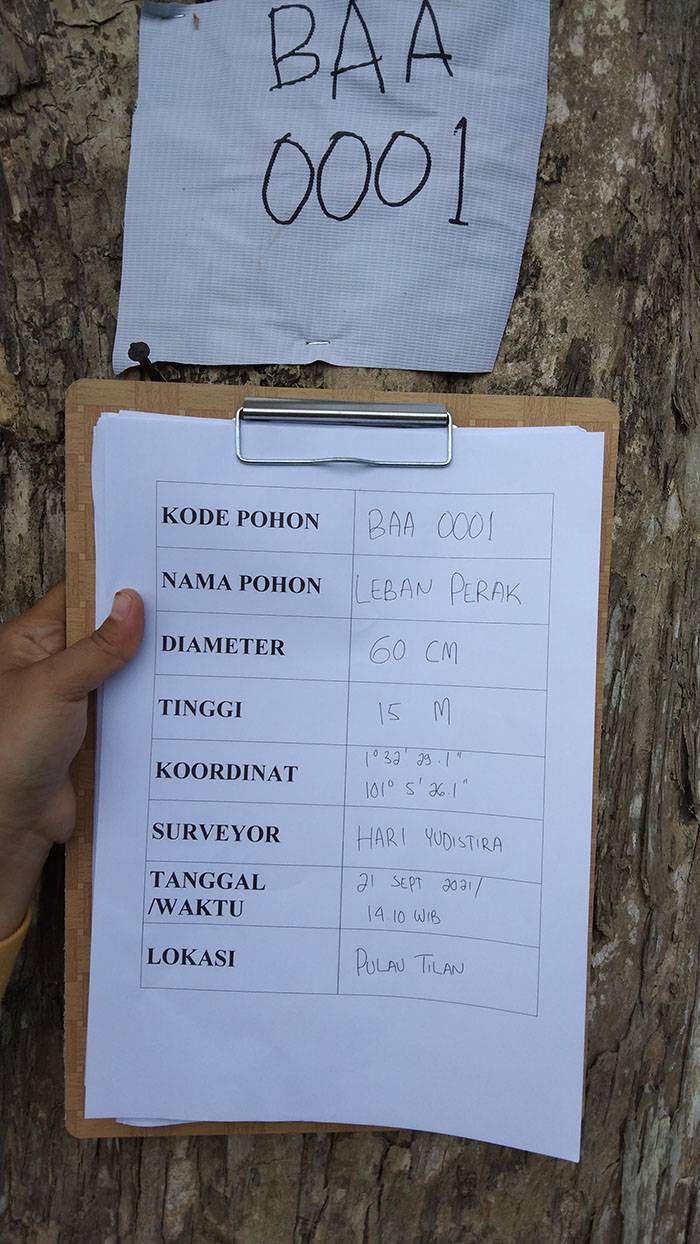 BAA
0001
KODE POHON BAA 0001
NAMA POHON LEBAN PERAK
DIAMETER 60 CM
TINGGI 15 M
KOORDINAT 1° 32' 29.1"
101° 5' 26.1"
SURVEYOR HARI YUDISTIRA
TANGGAL 21 SEPT 2021/
/WAKTU 14.10 WIB
LOKASI PULAU TILAN